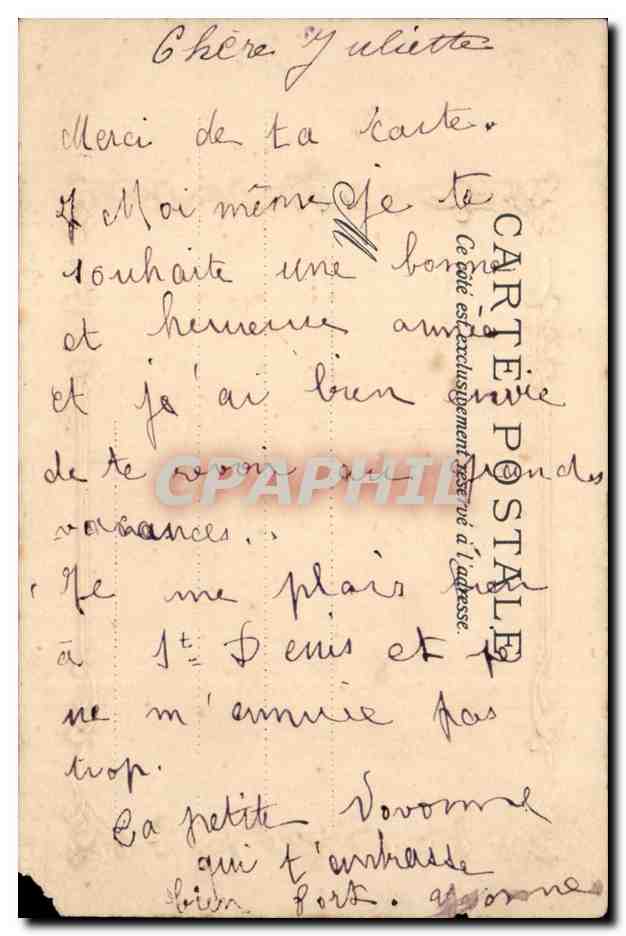 Chère Juliette
Merci de ta carte.
Moi même je te
souhaite une bonne
et heureuse année
et j'ai bien envie
de te revoir au grandes
vacances..
Je me plais bien
à St Denis et je
ne m'ennuie pas
trop.
La petite Vovonne
qui t'embrasse
bien fort. Yvonne
CARTE POSTALE
Ce côté est exclusivement réservé à l'adresse.
CPAPHIL